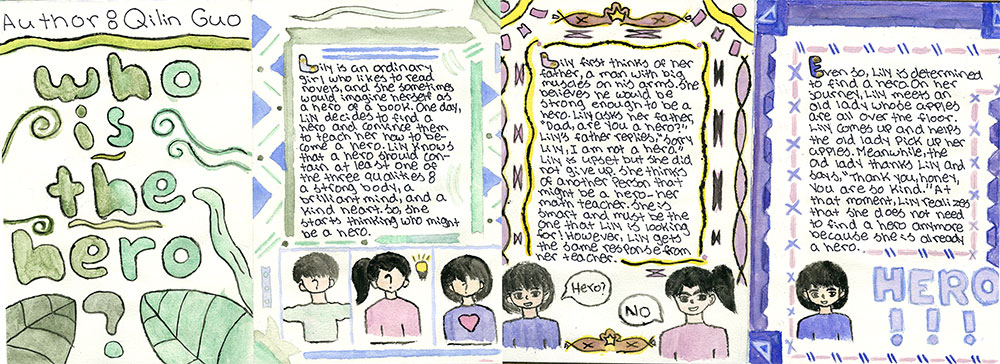 Author: Qilin Guo
who
is
the
hero
?
Lily is an ordinary
girl who likes to read
novels, and she sometimes
would imagine herself as
a hero of a book. One day,
Lily decides to find a
hero and convince them
to teach her how to be-
come a hero. Lily knows
that a hero should con-
tain at least one of
the three qualities:
a strong body, a
brilliant mind, and a
kind heart. So, she
starts thinking who might
be a hero.
Lily first thinks of her
father, a man with big
muscles on his arms. She
believes he would be
strong enough to be a
hero. Lily asks her father,
"Dad, are you a hero?"
Lily's father replies, "Sorry
Lily, I am not a hero."
Lily is upset but she did
not give up. She thinks
of another person that
might be a hero- her
math teacher. She is
smart and must be the
one that Lily is looking
for! However, Lily gets
the same response from
her teacher.
Hero?
NO
Even so, Lily is determined
to find a hero. On her
journey, Lily meets an
old lady whose apples
are all over the floor.
Lily comes up and helps
the old lady pick up her
apples. Meanwhile, the
old lady thanks Lily and
says, "Thank you, honey,
you are so kind." At
that moment, Lily realizes
that she does not need
to find a hero anymore
because she is already
a hero.
HERO
!!!